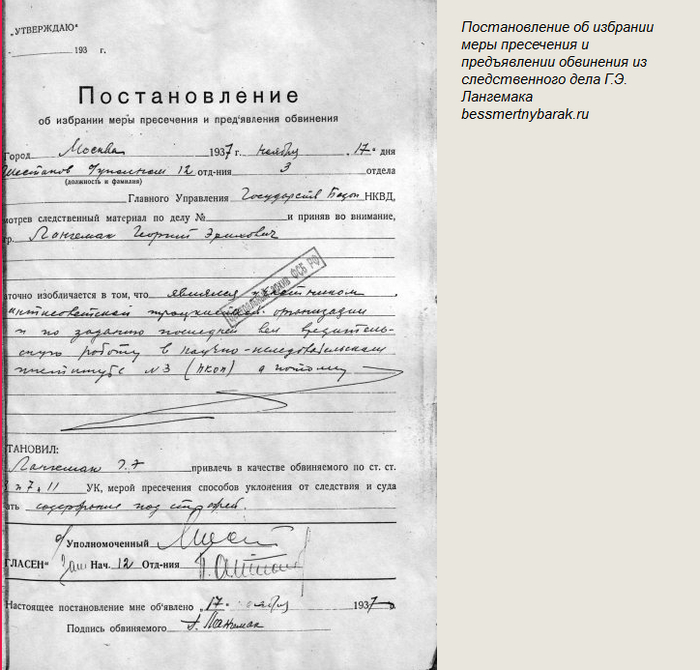 „УТВЕРЖДАЮ"
193 г.
Постановление
об избрании меры пресечения и пред'явления обвинения
Город Москва 1937 г. ноября 17 дня
12 отд-ния 3 отдела
(должность и фамилия)
Главного Управления Государств Безоп НКВД,
мотрев следственный материал по делу № и приняв во внимание,
гр. Лангемак Георгий Эрихович
ЦЕНТРАЛЬНЫЙ АРХИВ ФСБ РФ
аточно изобличается в том, что являлся участником
антисоветской троцкистской организации
и по заданию последней вел вредитель-
скую работу в научно-исследовательском
институте №3 (НКОП) а потому
ТАНОВИЛ:
Лангемак привлечь в качестве обвиняемого по ст. ст.
7, 11 УК, мерой пресечения способов уклонения от следствия и суда
ать содержание под стражей.
Уполномоченный
ГЛАСЕН" Зам Нач. 12 Отд-ния
Настоящее постановление мне об'явлено „17" ноября 1937
Подпись обвиняемого Г. Лангемак
Постановление об избрании
меры пресечения и
предъявлении обвинения из
следственного дела Г.Э.
Лангемака
bessmertnybarak.ru